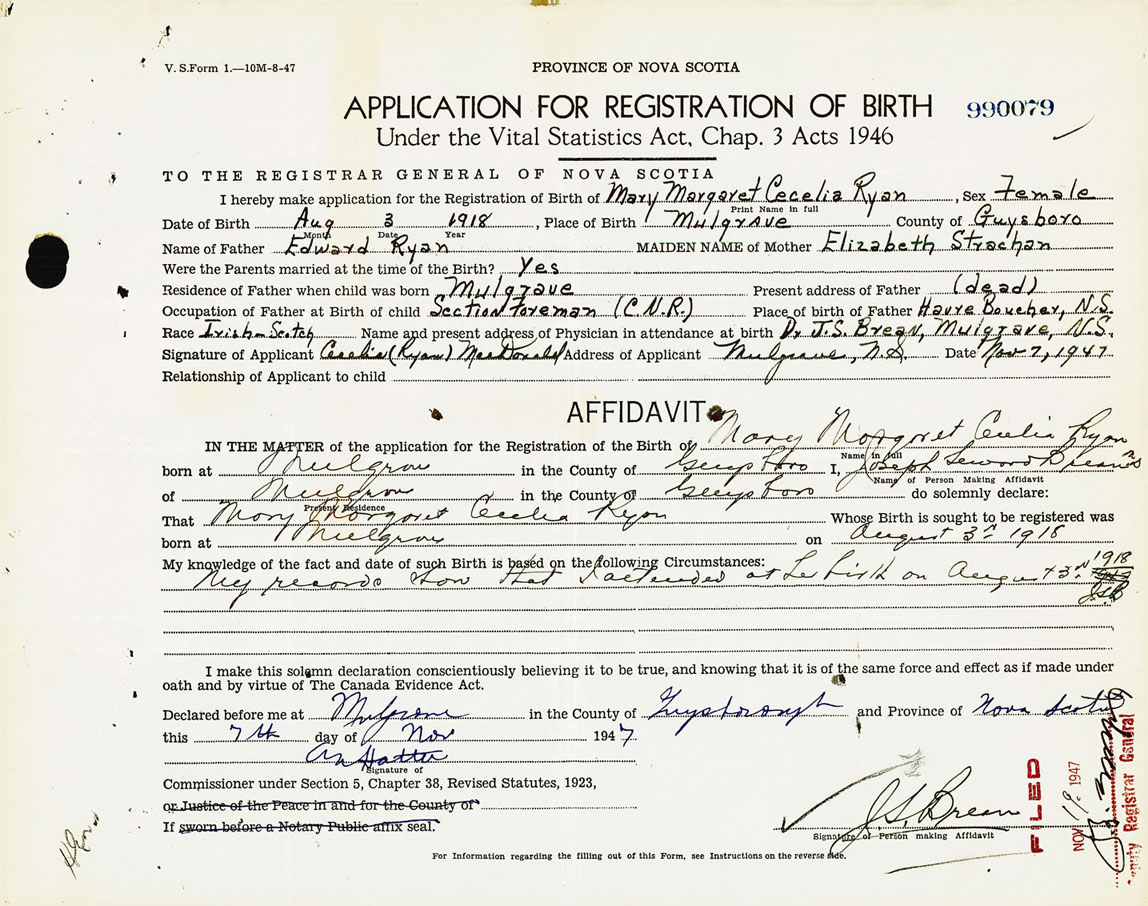 V. S.Form 1.—10M-8-47
PROVINCE OF NOVA SCOTIA
APPLICATION FOR REGISTRATION OF BIRTH 990079
Under the Vital Statistics Act, Chap. 3 Acts 1946
TO THE REGISTRAR GENERAL OF NOVA SCOTIA
I hereby make application for the Registration of Birth of Mary Margaret Cecelia Ryan, Sex Female
Print Name in full
Date of Birth Aug 3 1918, Place of Birth Mulgrave County of Guysboro
Month Date Year
Name of Father Edward Ryan MAIDEN NAME of Mother Elizabeth Strachan
Were the Parents married at the time of the Birth? Yes
Residence of Father when child was born Mulgrave Present address of Father (dead)
Occupation of Father at Birth of child Section Foreman (C.N.R.) Place of birth of Father Havre Boucher, N.S.
Race Irish-Scotch Name and present address of Physician in attendance at birth Dr J.S. Brean, Mulgrave, N.S.
Signature of Applicant Cecelia (Ryan) MacDonald Address of Applicant Mulgrave, N.S. Date Nov 7, 1947
Relationship of Applicant to child
AFFIDAVIT
IN THE MATTER of the application for the Registration of the Birth of Mary Margaret Cecelia Ryan
Name in full
born at Mulgrave in the County of Guysboro I, Joseph Seward Brean
Name of Person Making Affidavit
of Mulgrave in the County of Guysboro do solemnly declare:
Present Residence
That Mary Margaret Cecelia Ryan Whose Birth is sought to be registered was
born at Mulgrave on August 3rd 1918
My knowledge of the fact and date of such Birth is based on the following Circumstances:
My records show that I attended at the birth on August 3rd 1918
J.S.B
I make this solemn declaration conscientiously believing it to be true, and knowing that it is of the same force and effect as if made under
oath and by virtue of The Canada Evidence Act.
Declared before me at Mulgrave in the County of Guysborough and Province of Nova Scotia
this 7th day of Nov 1947
Signature of
Commissioner under Section 5, Chapter 38, Revised Statutes, 1923,
or Justice of the Peace in and for the County of
If sworn before a Notary Public affix seal.
J.S. Brean
Signature of Person making Affidavit
For Information regarding the filling out of this Form, see Instructions on the reverse side.
FILED
NOV 1947
Deputy Registrar General